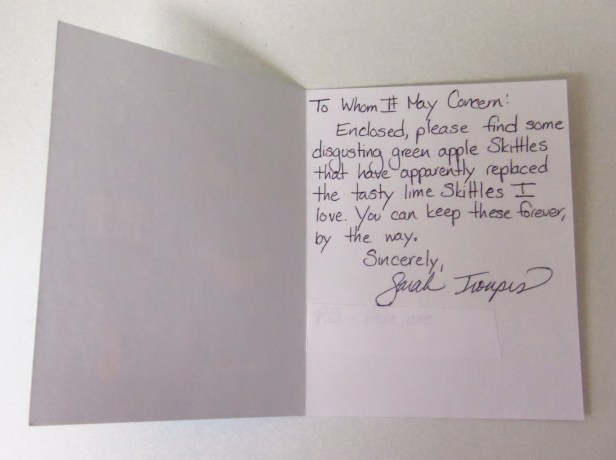 To Whom It May Concern:
Enclosed, please find some
disgusting green apple Skittles
that have apparently replaced
the tasty lime Skittles I
love. You can keep these forever,
by the way.
Sincerely,
Sarah